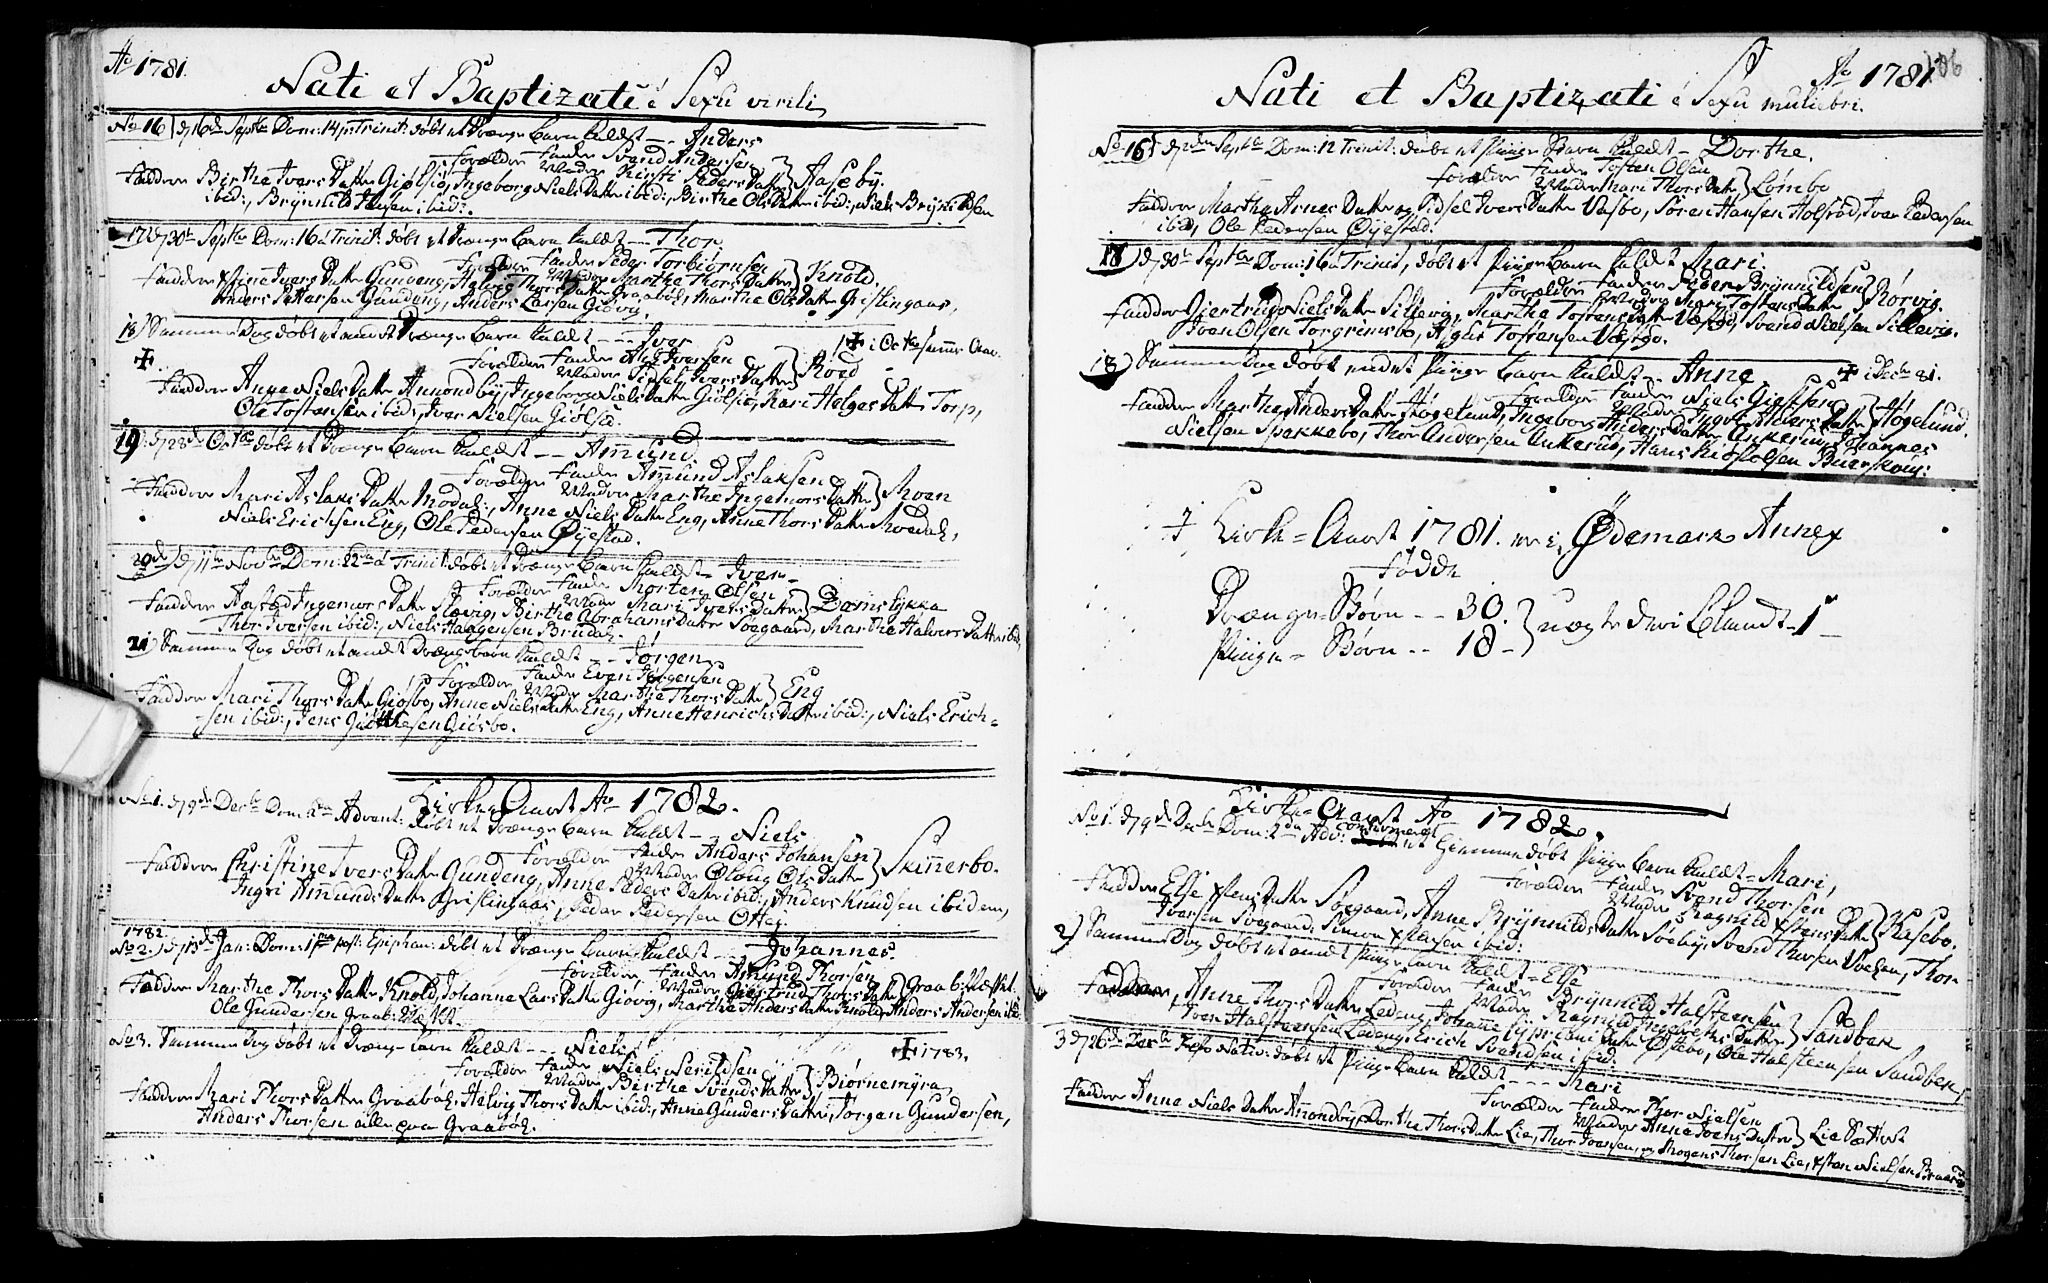 Ao 1781.
Nati et Baptizati é Sexu virili
No 16) d 16de Septbr Dom: 14 p Trinit: døbt et Drænge Barn kaldt -- Anders
Forældre Fader Svend Andersen
Moder Kirsti PedersDatter } Aaseby.
Faddere Birthe IversDatter Giølsiø, Ingeborg NielsDatter ibid:, Birthe OlsDatter ibid:, Niels Brynildsen
ibid:, Brynnild Jensen ibid:.
17) d 30te Septbr Dom: 16 a Trinit: døbt et Drænge Barn kaldt --- Thor
Forældre Fader Peder Torbiørnsen
Moder Marthe ThorsDatter } Knold.
Faddere IversDatter Gundeng, Helvig ThorsDatter Graabøl, Marthe OlsDatter Gislingaas,
Anders Pettersen Gundeng, Anders Larsen Giøvig.
18) Samme Dag døbt et andet Drænge Barn kaldt --- Iver
✝ i Octbr samme Aar.
Forældre Fader Iversen
Moder Sidsel IversDatter } Röed
Faddere Anne NielsDatter Amondbÿ, Ingeborg NielsDatter Giölsiö, Kari HelgesDatter Torp,
Ole Tostensen ibid:, Iver Nielsen Giölsiö.
19) d 28de Octbr døbt et Drænge Barn kaldt --- Amund.
Forældre Fader Amund Aslaksen
Moder Marthe IngemorsDatter } Moen
Faddere Mari AslaksDatter Modal:, Anne NielsDatter Eng, Anne ThorsDatter Moedal,
Niels Erichsen Eng, Ole Pedersen Øÿestad.
20de) d 11te Novbr Dom: 22 a Trinit: døbt et Drænge Barn kaldt - Iver -
Forældre Fader Morten Olsen
Moder Mari IversDatter } Damslykka
Faddere Aastad IngemorsDatter Slævig, Birthe AbrahamsDatter Söegaard, Marthe HalversDatter ibid,
Thor Iversen ibid:, Niels Haagensen Brudal.
21) Samme Dag døbt et andet Drængebarn kaldt --- Jørgen
Forældre Fader Even Jørgensen
Moder Marthe ThorsDatter } Eng
Faddere Mari ThorsDatter Giösbo, Anne NielsDatter Eng, Anne HenrichsDatter ibid:, Niels Erich-
sen ibid:, Jens Giösbo.
Kirke Aaret Ao 1782.
No 1. d 9de Decbr Dom: 2da Advent: døbt et Drænge Barn kaldt -- Niels
Forældre Fader Anders Johansen
Moder Oloug OlsDatter } Skinnerbo.
Faddere Christine IversDatter Gundeng, Anne PedersDatter ibid:, Anders Knudsen ibidem,
Ingri AmundsDatter Grislingaas, Peder Pedersen Otteg.
1782.
No 2.) d 13de Jan: Dom: 1ma post: Epiphan: døbt et Drænge Barn kaldt -- Johannes.
Forældre Fader Amund Thorsen
Moder Giertrud ThorsDatter } Graab:
Faddere Marthe ThorsDatter Knold, Johanne LarsDatter Giøvig, Marthe AndersDatter Knold, Anders Andersen ibid
Ole Gundersen Graab:
No 3. Samme Dag døbt et Drænge Barn kaldt --- Niels
✝ 1783.
Forældre Fader Niels Nerildsen
Moder Birthe SvendsDatter } Biørnemÿra
Faddere Mari ThorsDatter Graabøl, Helvig ThorsDatter ibid:, Anne GundersDatter, Jørgen Gundersen,
Anders Thorsen alle paa Graabøl.
106
Ao 1781.
Nati et Baptizati é Sexu muliebri.
No 16) d 2den Septbr Dom: 12 Trinit: døbt et Piige Barn kaldt - Dorthe.
Forældre Fader Tosten Olsen
Moder Mari ThorsDatter } Lømbo
Faddere Marthe ArnesDatter og Sidsel IversDatter Vasbo, Søren Hansen Holsröd, Iver Pedersen
ibid, Ole Pedersen Øÿestad.
17) d 30te Septbr Dom: 16 a Trinit, døbt et Piige Barn kaldt Mari.
Forældre Fader Peder Brÿnnildsen
Moder Mari TostensDatter } Rörvig.
Faddere Giertrud NielsDatter Sillevig, Marthe TostensDatter, Svend Nielsen Sillevig.
Sven Olsen Torgrimsbo, Tostensen.
18) Samme Dag døbt endet Piige Barn kaldt - Anne
✝ i Decbr 81.
Forældre Fader Niels
Moder Ingor HalversDatter } Høgelund.
Faddere Marthe AndersDatter Høgelund, Ingeborg AndersDatter Ankerud, Johannes
Nielsen Spakkebo, Thor Andersen Ankerud, Hans Buerskoug:
I Kirke-Aaret 1781. er i Ødemark Annex
Fødde
Drænge-Børn -- 30.
Piige-Børn -- 18 - } uægte deri blandt - 1 -
Kirke-Aaret Ao 1782.
No 1. d 9de Decbr Dom: 2da Adv: confirmeret et Hiemmedøbt Piige Barn kaldt = Mari,
Forældre Fader Svend Thorsen
Moder Ragnild } Kasebo.
Faddere Else Söegaard, Anne BrÿnnildsDatter Söebÿ, Svend Thorsen, Thor
Iversen Söegaard, Simon ibid:
2) Samme Dag døbt et andet Piige Barn kaldt = Else
Forældre Fader Brÿnnild Halsteensen
Moder Ragnild IngebretsDatter } Sandbek
Faddere, Anne ThorsDatter Ledeng, Johanne Datter Østbo, Ole Halsteensen Sandbek,
Iver Halsteensen Ledeng, Erich Svendsen ibid:
3 d 26de Decbr Festo Nativ: døbt et Piige Barn kaldt --- Mari
Forældre Fader Thor Nielsen
Moder Anne Datter } Lie
Faddere Anne NielsDatter Amondbÿ, Dorthe ThorsDatter Lie, Thor Iversen, og Mogens Thorsen Lie, Nielsen